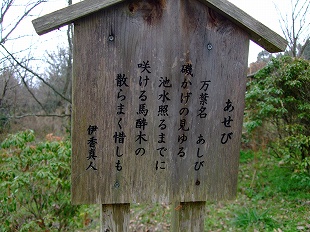 あせび
万葉名　あしび
磯かげの見ゆる
池水照るまでに
咲ける馬酔木の
散らまく惜しも
伊香真人